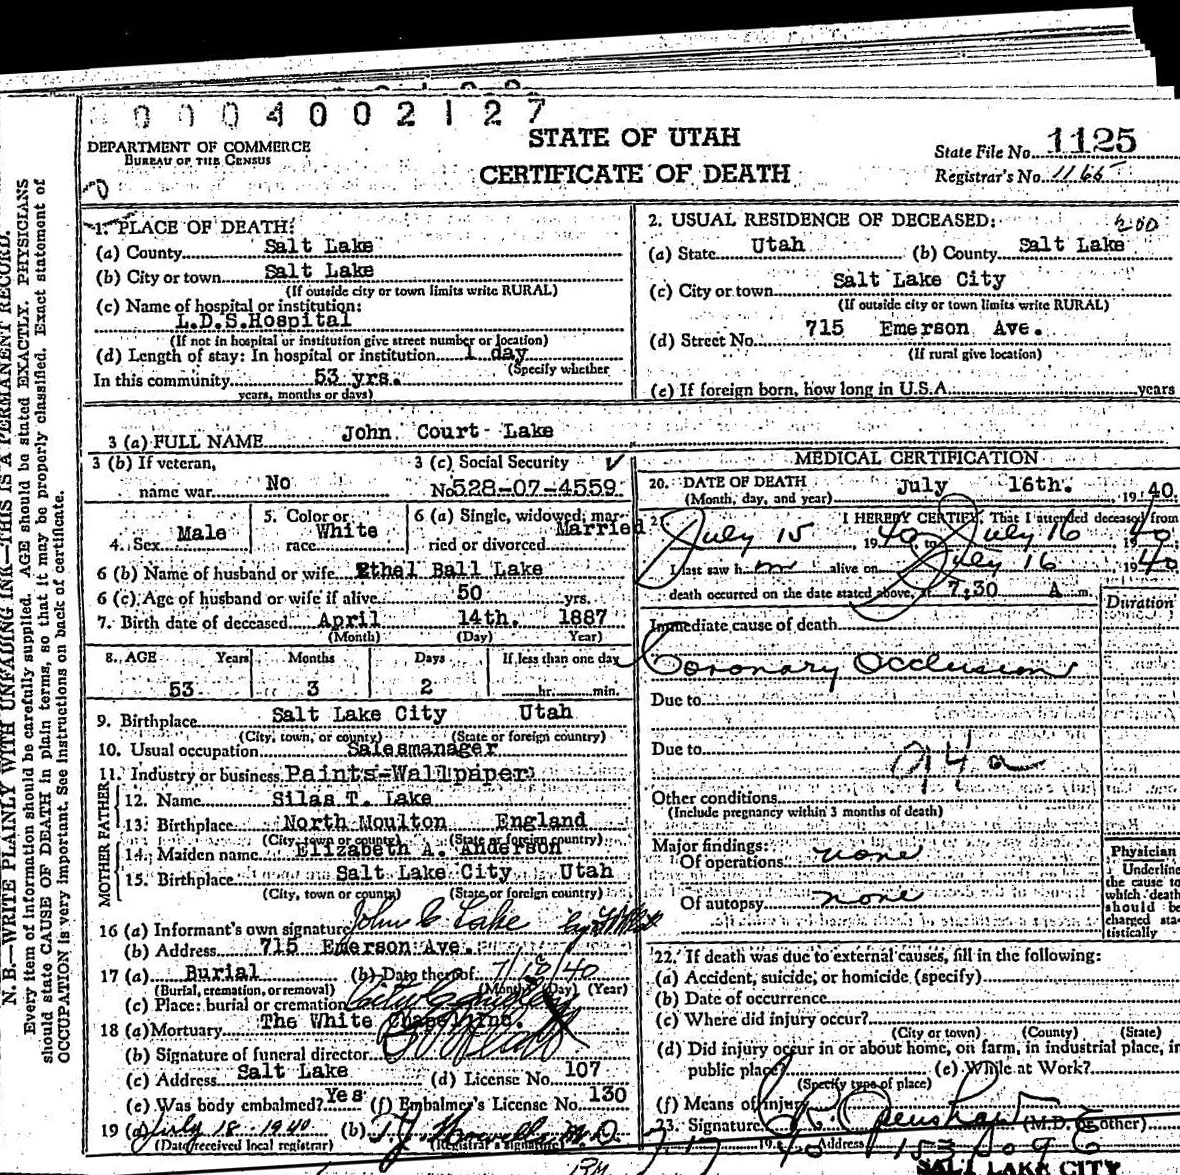 0004002127
DEPARTMENT OF COMMERCE
BUREAU OF THE CENSUS
STATE OF UTAH
CERTIFICATE OF DEATH
State File No. 1125
Registrar's No. 1166
N. B.—WRITE PLAINLY WITH UNFADING INK—THIS IS A PERMANENT RECORD.
Every item of information should be carefully supplied. AGE should be stated EXACTLY. PHYSICIANS
should state CAUSE OF DEATH in plain terms, so that it may be properly classified. Exact statement of
OCCUPATION is very important. See instructions on back of certificate.
1. PLACE OF DEATH:
(a) County Salt Lake
(b) City or town Salt Lake
(If outside city or town limits write RURAL)
(c) Name of hospital or institution:
L.D.S.Hospital
(If not in hospital or institution give street number or location)
(d) Length of stay: In hospital or institution 1 day
(Specify whether
In this community 53 yrs.
years, months or days)
2. USUAL RESIDENCE OF DECEASED: 200
(a) State Utah (b) County Salt Lake
(c) City or town Salt Lake City
(If outside city or town limits write RURAL)
(d) Street No. 715 Emerson Ave.
(If rural give location)
(e) If foreign born, how long in U.S.A. years
3 (a) FULL NAME John Court Lake
3 (b) If veteran,
name war No
3 (c) Social Security
No. 528-07-4559
4. Sex Male
5. Color or
race White
6 (a) Single, widowed, mar-
ried or divorced Married
6 (b) Name of husband or wife Ethel Ball Lake
6 (c) Age of husband or wife if alive 50 yrs.
7. Birth date of deceased April 14th. 1887
(Month) (Day) Year)
8. AGE Years Months Days If less than one day
53 3 2 hr. min.
9. Birthplace Salt Lake City Utah
(City, town, or county) (State or foreign country)
10. Usual occupation Salesmanager
11. Industry or business Paints-Wallpaper
FATHER
12. Name Silas T. Lake
13. Birthplace North Moulton England
(City, town or county) (State or foreign country)
MOTHER
14. Maiden name Elizabeth A. Anderson
15. Birthplace Salt Lake City Utah
(City, town or county) (State or foreign country)
16 (a) Informant's own signature John C Lake
(b) Address 715 Emerson Ave.
17 (a) Burial (b) Date thereof 7/18/40
(Burial, cremation, or removal) (Month) (Day) (Year)
(c) Place: burial or cremation City
18 (a) Mortuary The White Chapel Inc.
(b) Signature of funeral director
(c) Address Salt Lake (d) License No. 107
(e) Was body embalmed? Yes (f) Embalmer's License No. 130
19 (a) July 18-1940 (b) M.D.
(Date received local registrar) (Registrar's signature)
MEDICAL CERTIFICATION
20. DATE OF DEATH
(Month, day, and year) July 16th. , 1940.
21. I HEREBY CERTIFY, That I attended deceased from
July 15, 1940 to July 16 1940
I last saw h m alive on July 16 1940
death occurred on the date stated above, at 7:30 A m.
Immediate cause of death Duration
Coronary Occlusion
Due to
Due to
94a
Other conditions
(Include pregnancy within 3 months of death)
Major findings:
Of operations none
Of autopsy none
Physician
Underline
the cause to
which death
should be
charged sta-
tistically
22. If death was due to external causes, fill in the following:
(a) Accident, suicide, or homicide (specify)
(b) Date of occurrence
(c) Where did injury occur?
(City or town) (County) (State)
(d) Did injury occur in or about home, on farm, in industrial place, in
public place? (e) While at Work?
(Specify type of place)
(f) Means of injury
23. Signature (M.D. or other)
7-17 1940 Address
SALT LAKE CITY